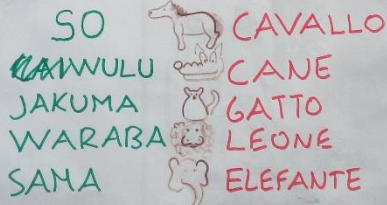 SO CAVALLO
WULU CANE
JAKUMA GATTO
WARABA LEONE
SAMA ELEFANTE